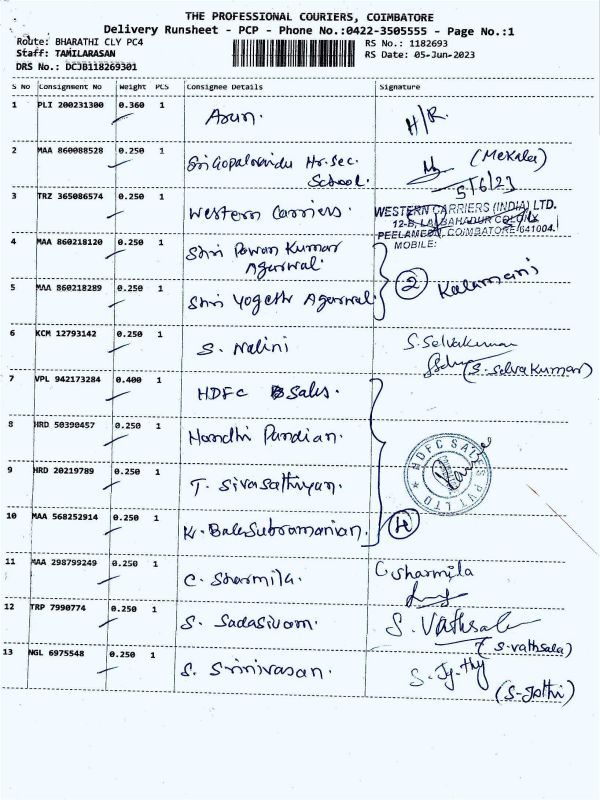 THE PROFESSIONAL COURIERS, COIMBATORE
Delivery Runsheet - PCP - Phone No.:0422-3505555 - Page No.:1
Route: BHARATHI CLY PC4 RS No.: 1182693
Staff: TAMILARASAN RS Date: 05-Jun-2023
DRS No.: DCJB118269301
S No Consignment No Weight PCS Consignee Details Signature
1 PLI 200231300 0.360 1 Arun. H/R.
2 MAA 860088528 0.250 1 Sri Gopal Hr. Sec. (Mekala)
School. 5/6/23
3 TRZ 365086574 0.250 1 Western Carriers. WESTERN CARRIERS (INDIA) LTD.
12-B, LAL BAHADUR COLONY
PEELAMEDU, COIMBATORE 641004.
MOBILE:
4 MAA 860218120 0.250 1 Shri Pawan Kumar
Agarwal.
5 MAA 860218289 0.250 1 Shri Yogesh Agarwal. 2 Kalamani
6 KCM 12793142 0.250 1 S. Nalini S. Selvakumar
(S. Selvakumar)
7 VPL 942173284 0.400 1 HDFC Sales.
8 HRD 50390457 0.250 1 Pandian.
9 HRD 20219789 0.250 1 T. Sivasathiyan. HDFC SALES PVT LTD
10 MAA 568252914 0.250 1 K. BalaSubramanian. 4
11 MAA 298799249 0.250 1 C. Sharmila. C. Sharmila
12 TRP 7990774 0.250 1 S. Sadasivam. S. Vathsala
(S. vathsala)
13 NGL 6975548 0.250 1 S. Srinivasan. S. Jothy
(S-Jothi)